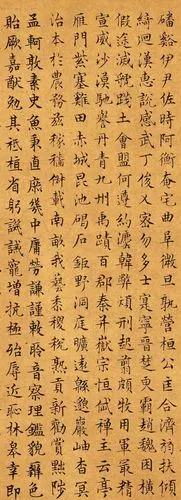 磻谿伊尹佐時阿衡奄宅曲阜微旦孰營桓公匡合濟弱扶傾
綺迴漢惠說感武丁俊乂密勿多士寔寧晉楚更霸趙魏困橫
假途滅虢踐土會盟何遵約灋韓弊煩刑起翦頗牧用軍最精
宣威沙漠馳譽丹青九州禹蹟百郡秦并嶽宗恒岱禪主云亭
雁門紫塞雞田赤城昆池碣石鉅野洞庭曠遠緜邈巖岫杳冥
治本於農務茲稼穡俶載南畝我藝黍稷稅熟貢新勸賞黜陟
孟軻敦素史魚秉直庶幾中庸勞謙謹敕聆音察理鑑貌辯色
貽厥嘉猷勉其祗植省躬譏誡寵增抗極殆辱近恥林皋幸即